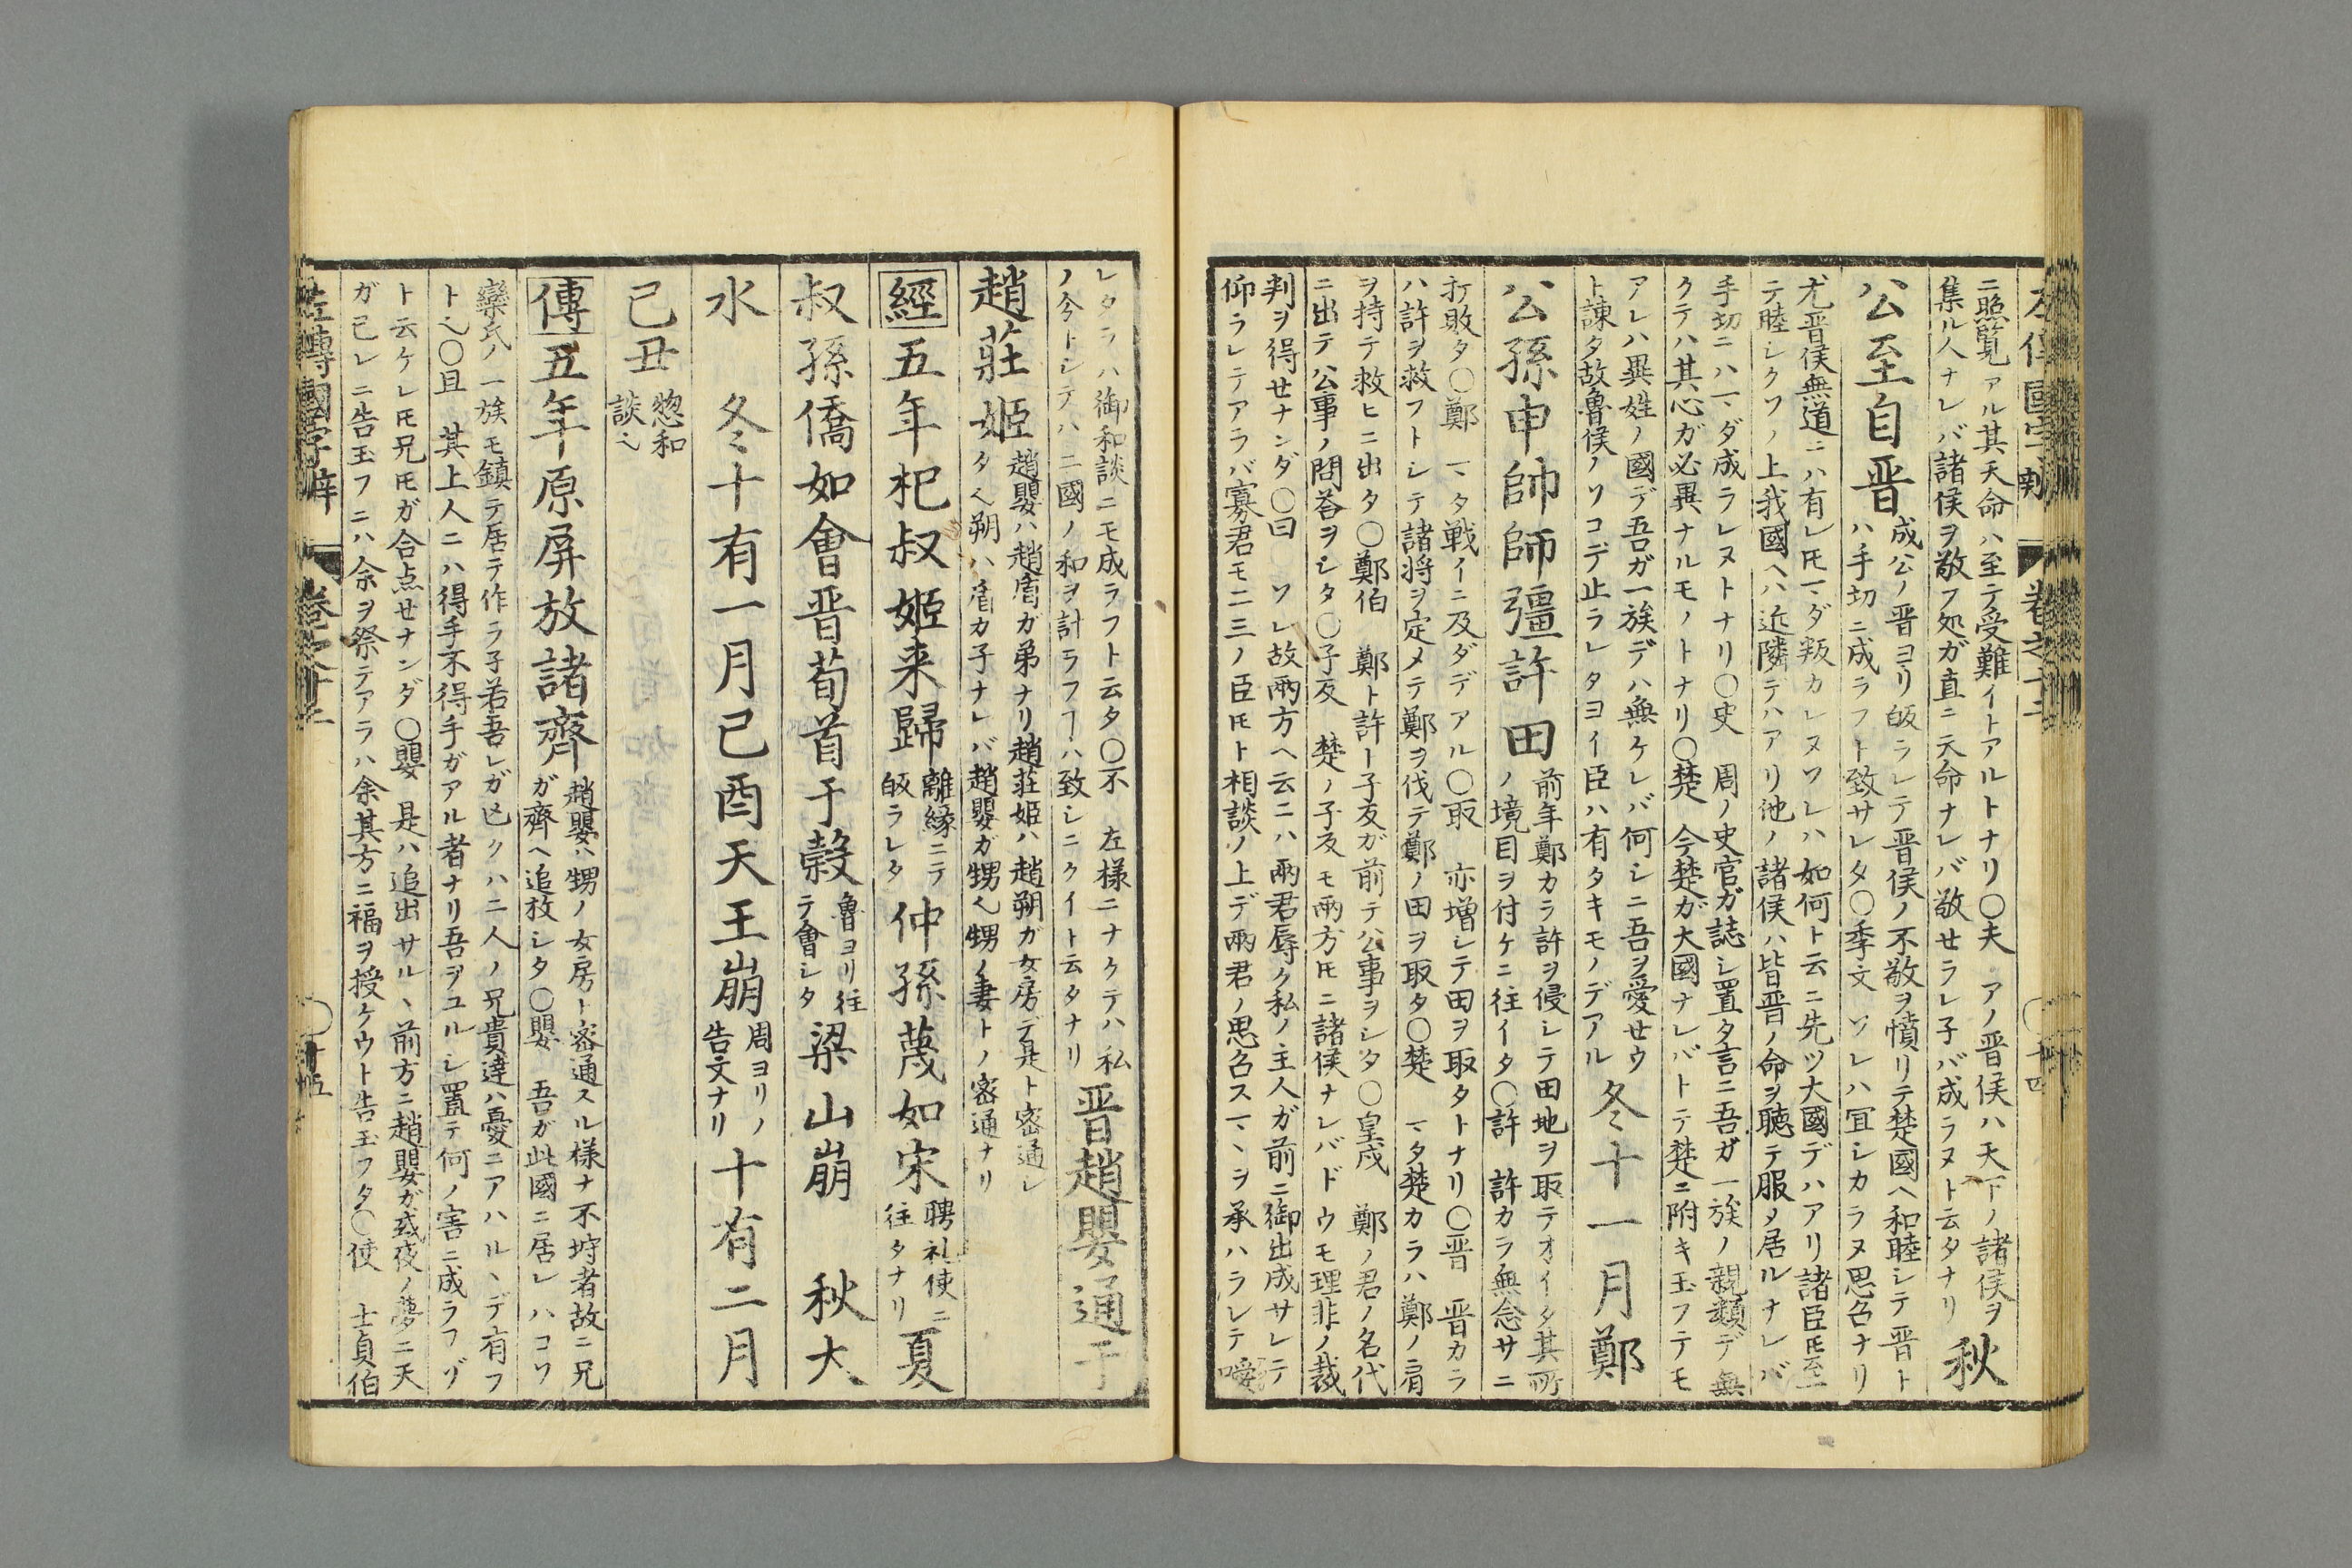 左傳國字辯 卷之十二 十四
ニ照覧アル其天命ハ至テ受難イトアルトナリ〇夫 アノ晋侯ハ天下ノ諸侯ヲ
集ル人ナレバ諸侯ヲ敬フ処ガ直ニ天命ナレバ敬せラレ子バ成ラヌト云タナリ 秋
公至自晋
成公ノ晋ヨリ皈ラレテ晋侯ノ不敬ヲ憤リテ楚國ヘ和睦シテ晋ト
ハ手切ニ成ラフト致サレタ〇季文 ソレハ宜シカラヌ思召ナリ
尤晋侯無道ニハ有レ𪜈マダ叛カレヌソレハ如何ト云ニ先ツ大國デハアリ諸臣𪜈至
テ睦シクソノ上我國ヘハ近隣テハアリ他ノ諸侯ハ皆晋ノ命ヲ聴テ服タ居ルナレバ
手切ニハマダ成ラレヌトナリ〇史 周ノ史官ガ誌シ置タ言ニ吾ガ一族ノ親類デ無
クテハ其心ガ必異ナルモノトナリ〇楚 今楚ガ大國ナレバトテ楚ニ附キ玉フテモ
アレハ異姓ノ國デ吾ガ一族デハ無ケレバ何シニ吾ヲ愛せウ
ト諌タ故魯侯ノソコデ止ラレタヨイ臣ハ有タキモノデアル
冬十一月鄭
公孫申帥師彊許田
前年鄭カラ許ヲ侵シテ田地ヲ取テオイタ其所
ノ境目ヲ付ケニ往イタ〇許 許カラ無念サニ
打敗タ〇鄭 マタ戦イニ及ダデアル〇取 亦増シテ田ヲ取タトナリ〇晋 晋カラ
ハ許ヲ救フトシテ諸将ヲ定メテ鄭ヲ伐テ鄭ノ田ヲ取タ〇楚 マタ楚カラハ鄭ノ肩
ヲ持テ救ヒニ出タ〇鄭伯 鄭ト許ト子反ガ前テ公事ヲシタ〇皇戌 鄭ノ君ノ名代
ニ出テ公事ノ問答ヲシタ〇子反 楚ノ子反モ両方𪜈ニ諸侯ナレバドウモ理非ノ裁
判ヲ得せナンダ〇曰 ソレ故両方ヘ云ニハ両君辱ク私ノ主人ガ前ニ御出成サレテ
仰ラレテアラバ寡君モ二三ノ臣𪜈ト相談ノ上デ両君ノ思召スマヽヲ承ハラレテ
レタラハ御和談ニモ成ラフト云タ〇不 左様ニナクテハ私
ノ今トシテハ二國ノ和ヲ計ラフヿハ致シニクイト云タナリ
晋趙嬰通于
趙莊姬
趙嬰ハ趙盾ガ弟ナリ趙荘姫ハ趙朔ガ女房デ是ト密通シ
タ也朔ハ盾カ子ナレバ趙嬰ガ甥也甥ノ妻トノ密通ナリ
經五年杞叔姬来歸
離縁ニテ
皈ラレタ
仲孫蔑如宋
聘礼使ニ
往タナリ
夏
叔孫僑如會晋荀首于榖
魯ヨリ往
テ會シタ
梁山崩 秋大
水 冬十有一月己酉天王崩
周ヨリノ
告文ナリ
十有二月
己丑
惣和
談也
傳五年原屏放諸齊
趙嬰ハ甥ノ女房ト密通スル様ナ不埒者故ニ兄
ガ齊ヘ追放シタ〇嬰 吾ガ此國ニ居レハコソ
欒氏ノ一族モ鎮テ居テ作ラ子若吾レガ亡クハ二人ノ兄貴達ハ憂ニアハルヽデ有フ
ト也〇且 其上人ニハ得手不得手ガアル者ナリ吾ヲユルシ置テ何ノ害ニ成ラフゾ
ト云ケレ𪜈兄𪜈ガ合点せナンダ〇嬰 是ハ追出サルヽ前方ニ趙嬰ガ或夜ノ夢ニ天
ガ己レニ告玉フニハ余ヲ祭テアラハ余其方ニ福ヲ授ケウト告玉フタ〇使 士貞伯
左傳國字辯 卷之十二 十五